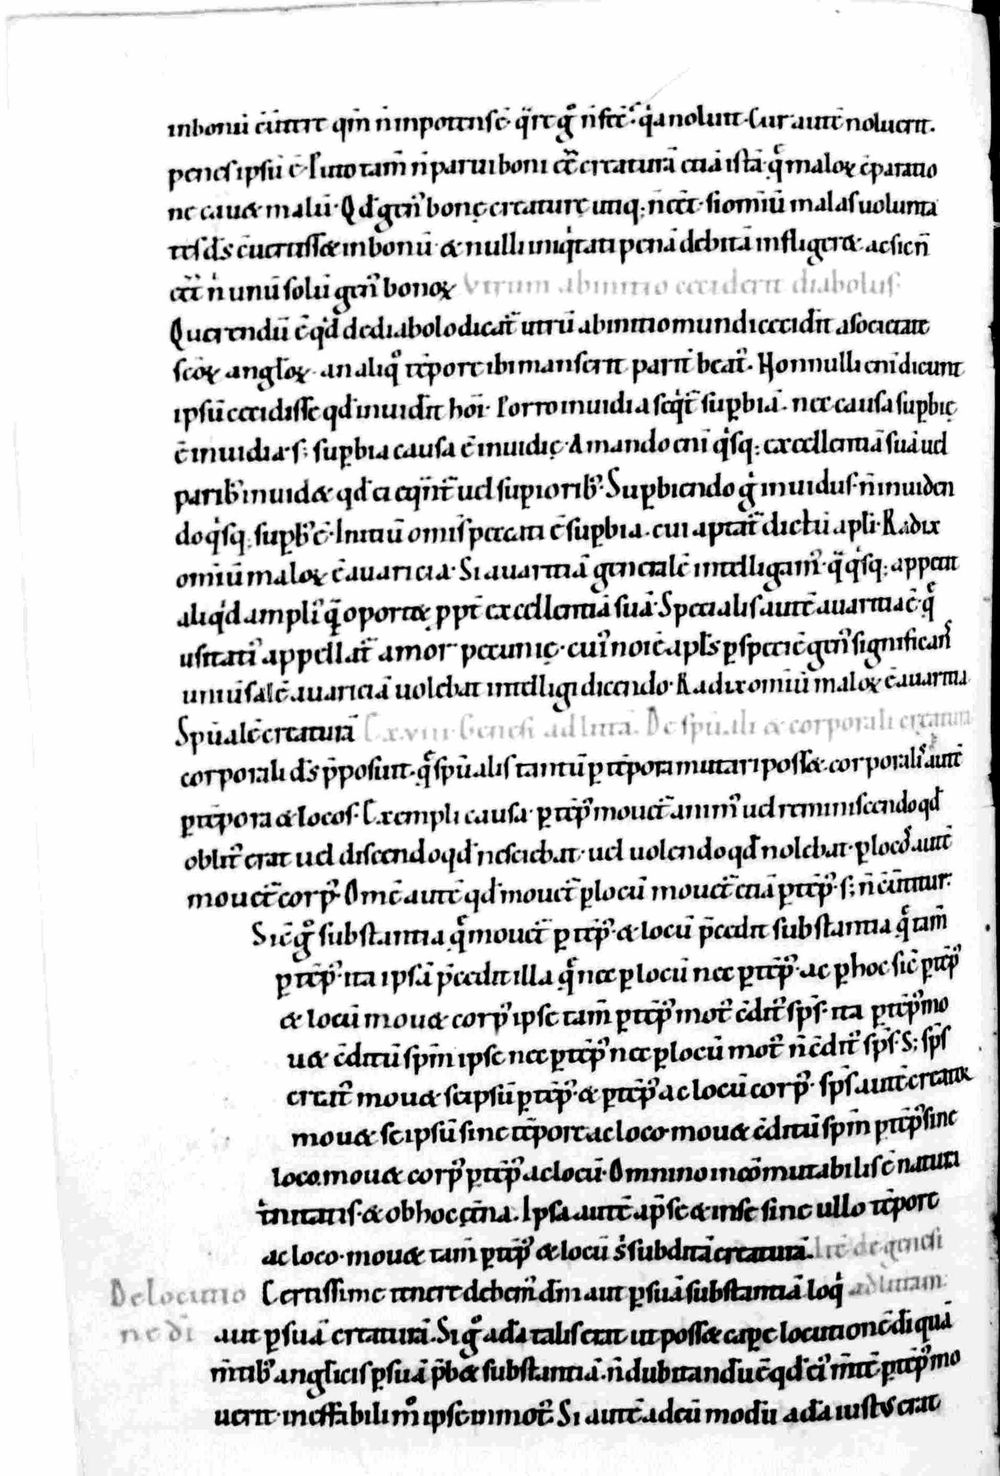 in bonū c̄uertꝰe qm̄ n̄ inpotens ē. q̄re gͦ n̄ fec̄. qͥa noluit. Cur autē noluerit.
penes ipsū ē. Ꝉ uero tam̄ n̄ parui boni cē̄ creaturā etiā istā. qͣ̄ maloꝝ cparatio
ne cauet malū. Qd̓ genꝰ bonę creaturę utiq; n̄ eēt. si omiū malas uolunta
tes d̓s c̄uertisset in bonū. & nulli iniqͥtati penā debitā infligeret. ac sic n̄
eēt n̄ unū solū genꝰ bonoꝝ Vtrum ab initio ceciderit diabolus.
Querendū ē qͥd de diabolo dicat̄ utrū ab initio mundi cecidit a societate
sc̄oꝝ angl̄oꝝ. an aliqͦ tēpore ibi manserit parit̄ beatꝰ. Nonnulli eni dicunt
ipsū cecidisse qd̓ inuidit̄ hoī. Porro inuidia seqͥt̄ supbiā. nec causa supbię
ē inuidia. s; supbia causa ē inuidię. Amando eni qͥsq; excellentiā suā uel
paribꝰ inuidet qd̓ ei eqn̄t̄ uel supioribꝰ. Supbiendo gͦ inuidus. n̄ inuiden
do qͥsq; supbꝰ ē. Initiū omis̄ peccati ē supbia. cui aptat̄ dictū apl̄i. Radix
omiū maloꝝ ē auaricia. Si auaritiā generalē intelligamꝰ. qͣ qͥsq; appetit
aliqͥd ampliꝰ qͣ̄ oportet. ppt̄ excellentiā suā. Specialis autē auaritia ē. qͣ̄
usitatiꝰ appellat̄ amor pecunię. cuiꝰ noīe apl̄s p̄ speciē genꝰ significans̄
uniūsalē auariciā uolebat intelligi dicendo. Radix omiū maloꝝ ē auaritia
Spūalē creaturā Ex. viii. Genesi ad litt̄ā. De spūali & corporali creatura
corporali d̓s pposuit. qͣ̄ spūalis tantū p tēpora mutari posset. corporalisꝰ autē
p tēpora & locos. Exempli causa. p tēpꝰ mouet̄ animꝰ uel reminiscendo qd̓
oblitꝰ erat uel discendo qd̓ nesciebat. uel uolendo qd̓ nolebat. p locoꝰ autē
mouet̄ corpꝰ. Omē autē qd̓ mouet̄ p locū mouet̄ etiā p tēpꝰ. s; n̄ c̄uertitur.
Sic gͦ substantia qͣ̄ mouet̄ p tēpꝰ & locū p̄cedit substantia qͣ̄ tam̄
p tēpꝰ. ita ipsā p̄cedit illa qͣ̄ nec p locū nec p tēpꝰ. ac p hoc sic̄ p tēpꝰ
& locū mouet corpꝰ ipse tam̄ p tēpꝰ motꝰ c̄ditꝰ sps̄. ita p tēpꝰ mo
uet c̄ditū spm̄ ipse nec p tēpꝰ nec p locū motꝰ n̄ c̄ditꝰ sps̄. S; sps̄
creatꝰ mouet seipsū p tēpꝰ. & p tēpꝰ ac locū corpꝰ. sps̄ autē creator̄
mouet seipsū sine tēpore ac loco. mouet c̄ditū spm̄ p tēpꝰ sine
loco. mouet corpꝰ p tēpꝰ ac locū. Omnino incōmutabilis ē natura
tͥnitatis. & ob hoc ęt̄na. Ipsa autē ap̄ se & in se sine ullo tēpore
ac loco. mouet tam̄ p tēpꝰ & locū sͥ subditā creaturā. Itē de genesi
De locutio Certissime tenere debemꝰ dm̄ aut p suā substantiā loqͥ ad litt̄am.
ne d̄i aut p suā creaturā. Si gͦ adā talis erat ut posset cape locutionē d̄i quā
m̄tibꝰ anglicis p suā p̄bet substantiā. n̄ dubitandū ē qd̓ eiꝰ m̄tē p tēpꝰ mo
uerit. ineffabili mͦ ipse n̄ motꝰ. Si autē ad eū modū adā iustus erat